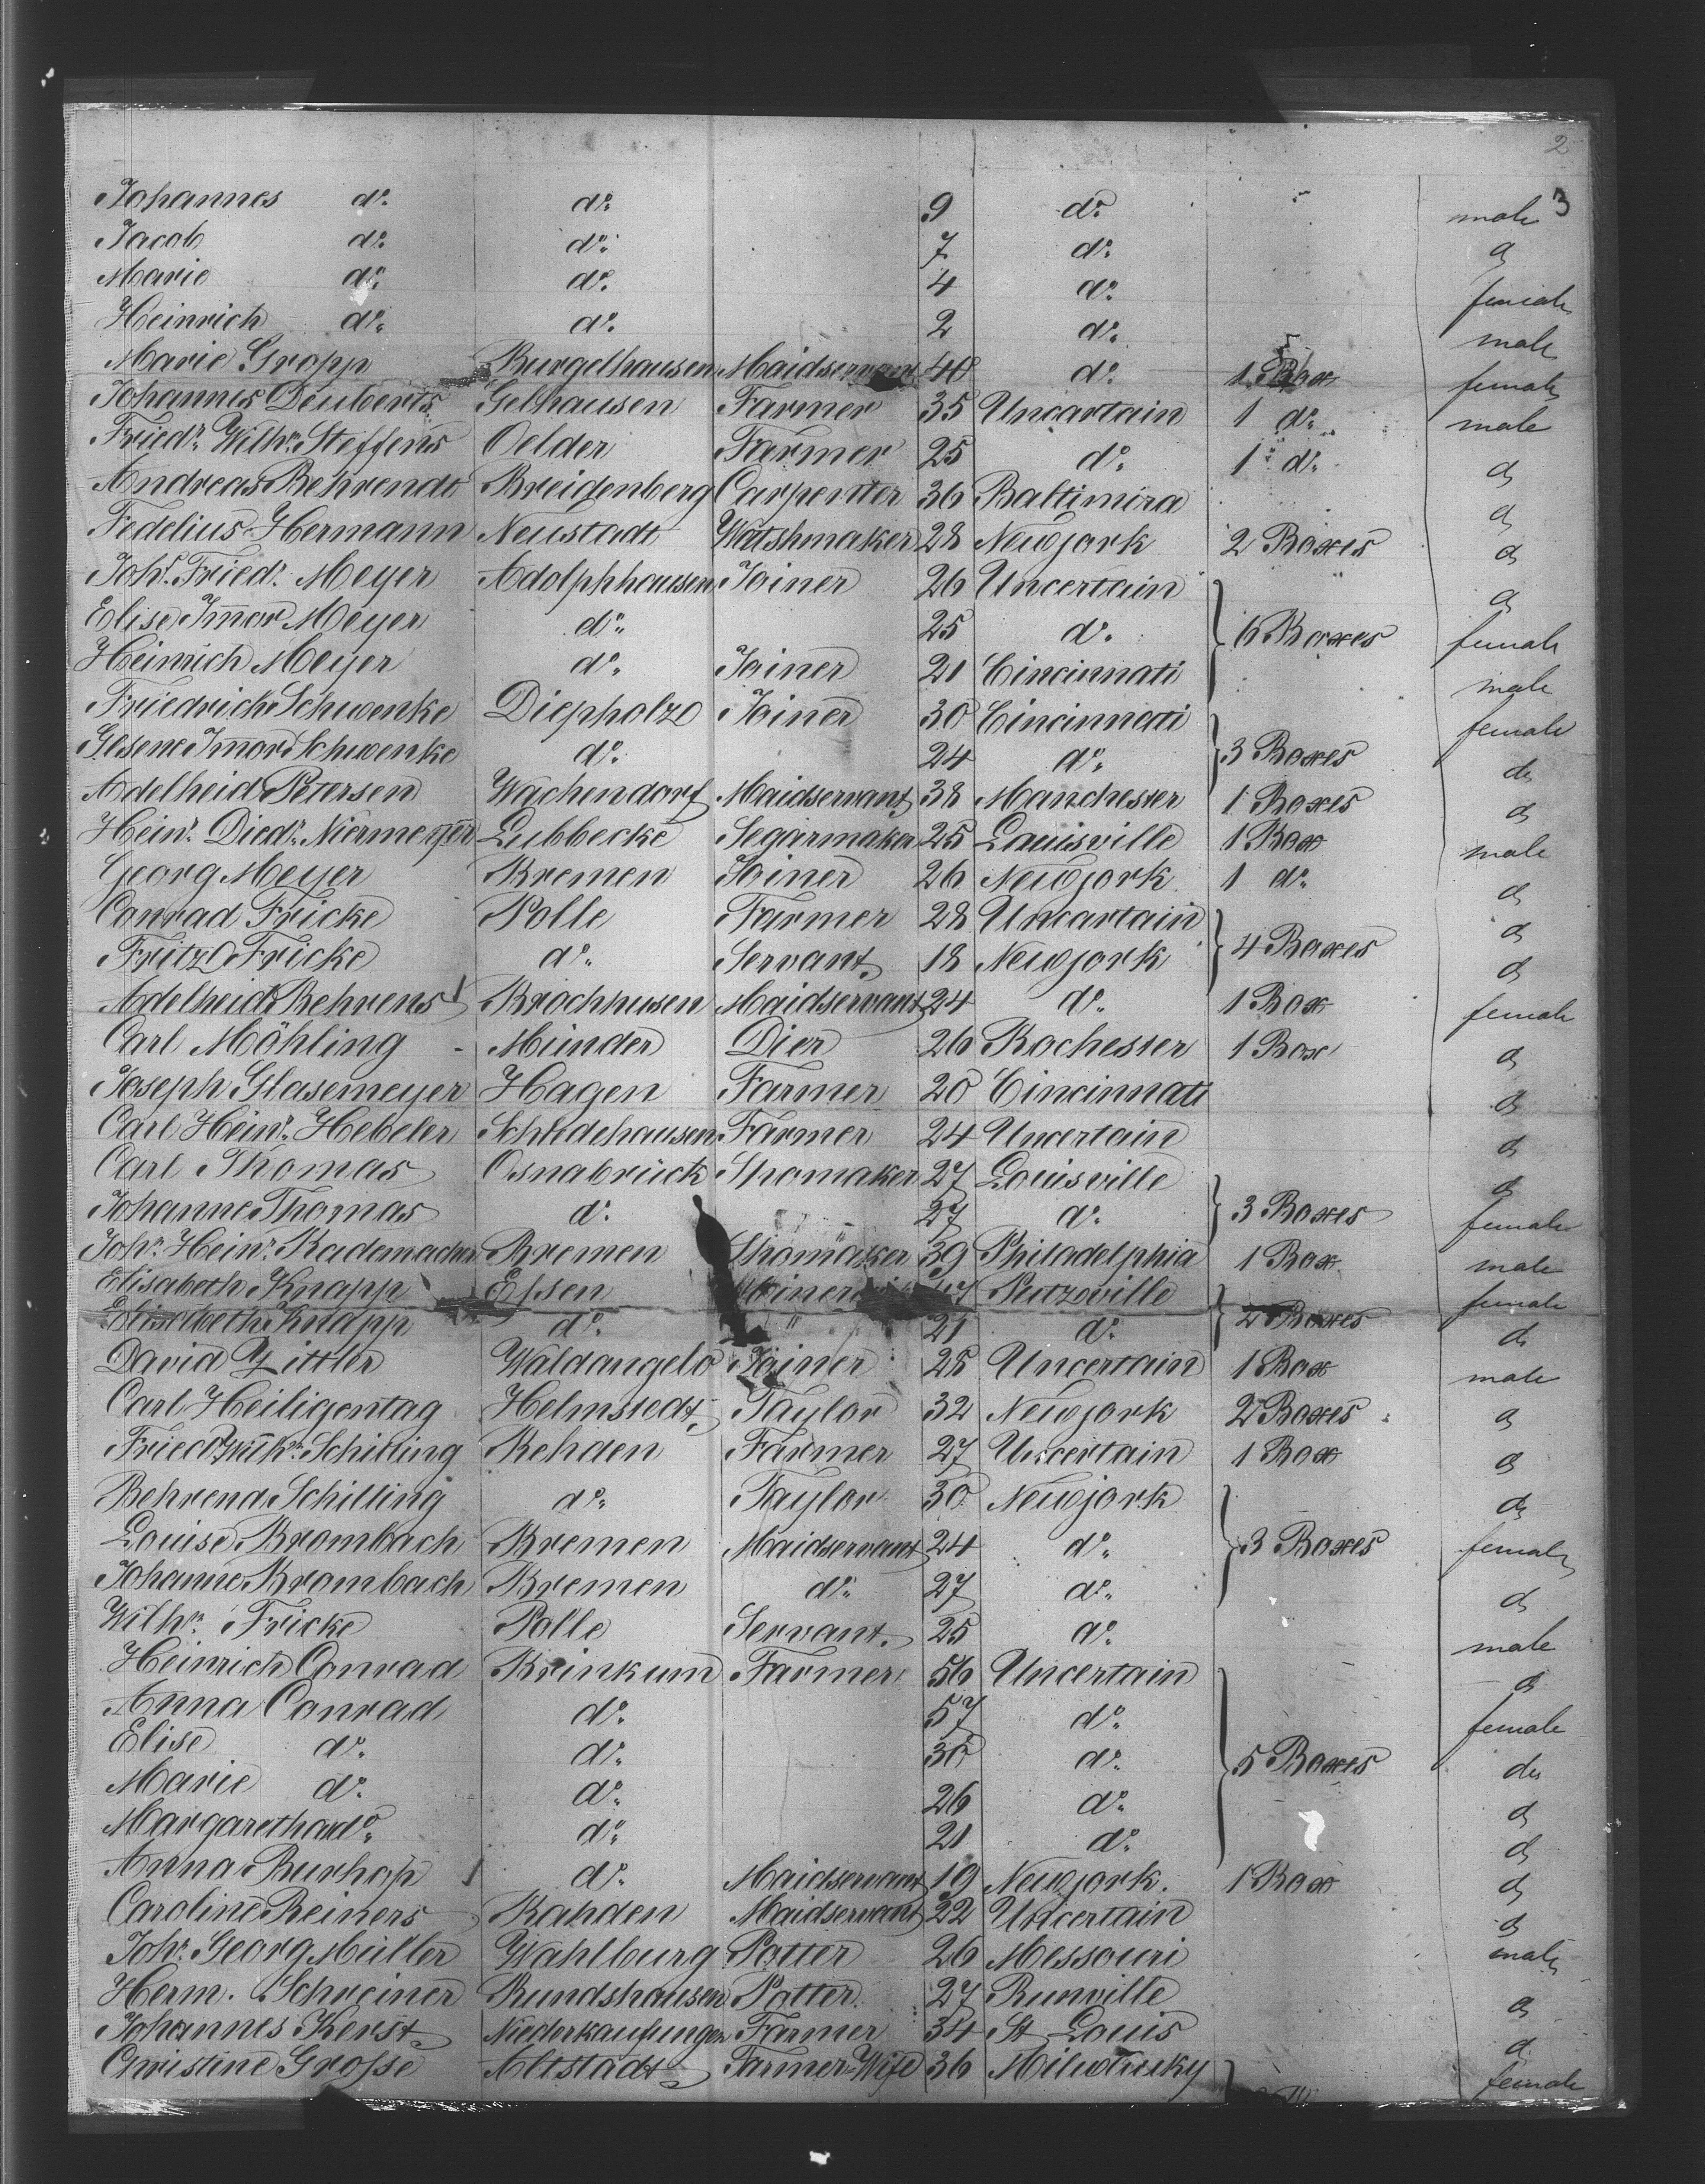 2
3
Johannes do. do. 9 do. male
Jacob do. do. 7 do. do
Marie do. do. 4 do. female
Heinrich do. do. 2 do. male
Marie Gropp Burgelhausen Maidservant 40 do. 1 Box female
Johannes Deuberts Gelhausen Farmer 35 Uncartain 1 do. male
Friedr. Wilhm. Steffens Oelder Farmer 25 do. 1 do. do
Andreas Behrendt Breidenberg Carpenter 36 Baltimira do
Fedelius Hermann Neustadt Watshmaker 28 Newjork 2 Boxes do
Johs. Friedr. Meyer Adolphhausen Joiner 26 Uncertain do
Elise Meyer do. 25 do. 6 Boxes female
Heinrich Meyer do. Joiner 21 Cincinnati male
Friedrich Schwenke Diepholz Joiner 30 Cincinnati female
Gesene Schwenke do. 24 do. 3 Boxes do
Adelheid Petersen Wachendorf Maidservant 38 Manchester 1 Boxes do
Heinr. Diedr. Niermeyer Lubbecke Segarmaker 25 Lauisville 1 Box male
Georg Meyer Bremen Joiner 26 Newjork 1 do. do
Conrad Fricke Polle Farmer 28 Uncartain do
Fritz Fricke do. Servant 18 Newjork 4 Boxes do
Adelheid Behrens Brochhusen Maidservant 24 do. 1 Box female
Carl Möhling Münder Dier 26 Rochester 1 Box do
Joseph Glasemeyer Hagen Farmer 20 Cincinnati do
Carl Heinr. Hebeler Schledehausen Farmer 24 Uncertain do
Carl Thomas Osnabrück Shomaker 27 Louisville do
Johanne Thomas do. 27 do. 3 Boxes female
Johr. Heinr. Rademacher Bremen Shomaker 39 Philadelphia 1 Box male
Elisabeth Knapp Essen female
Elisabeth Knapp do. 21 do. 2 Boxes do
David Zittler Waldangelo Joiner 28 Uncertain 1 Box male
Carl Heiligentag Helmstedt Taylor 32 Newjork 2 Boxes do
Friedr. Wilhm. Schilling Rehden Farmer 27 Uncertain 1 Box do
Behrend Schilling do. Taylor 30 Newjork do
Louise Brombach Bremen Maidservant 24 do. 3 Boxes female
Johanne Brombach Bremen do. 27 do. do
Wilhm. Fricke Polle Servant. 25 do. male
Heinrich Conrad Brinkum Farmer 56 Uncertain do
Anna Conrad do. 57 do. female
Elise do. do. 30 do. 5 Boxes do
Marie do. do. 26 do. do
Margaretha do. do. 21 do. do
Anna Burhop do. Maidservant 19 Newjork. 1 Box do
Caroline Reiners Rahden Maidservant 22 Uncertain do
Johr. Georg Müller Wahlburg Potter 26 Messouri male
Herm. Schreiner Rundshausen Potter. 27 Runville do
Johannes Kerst Niederkaufungen Farmer 34 St Louis do
Christine Grosse Altstadt Farmer-Wife 36 Milwausky female